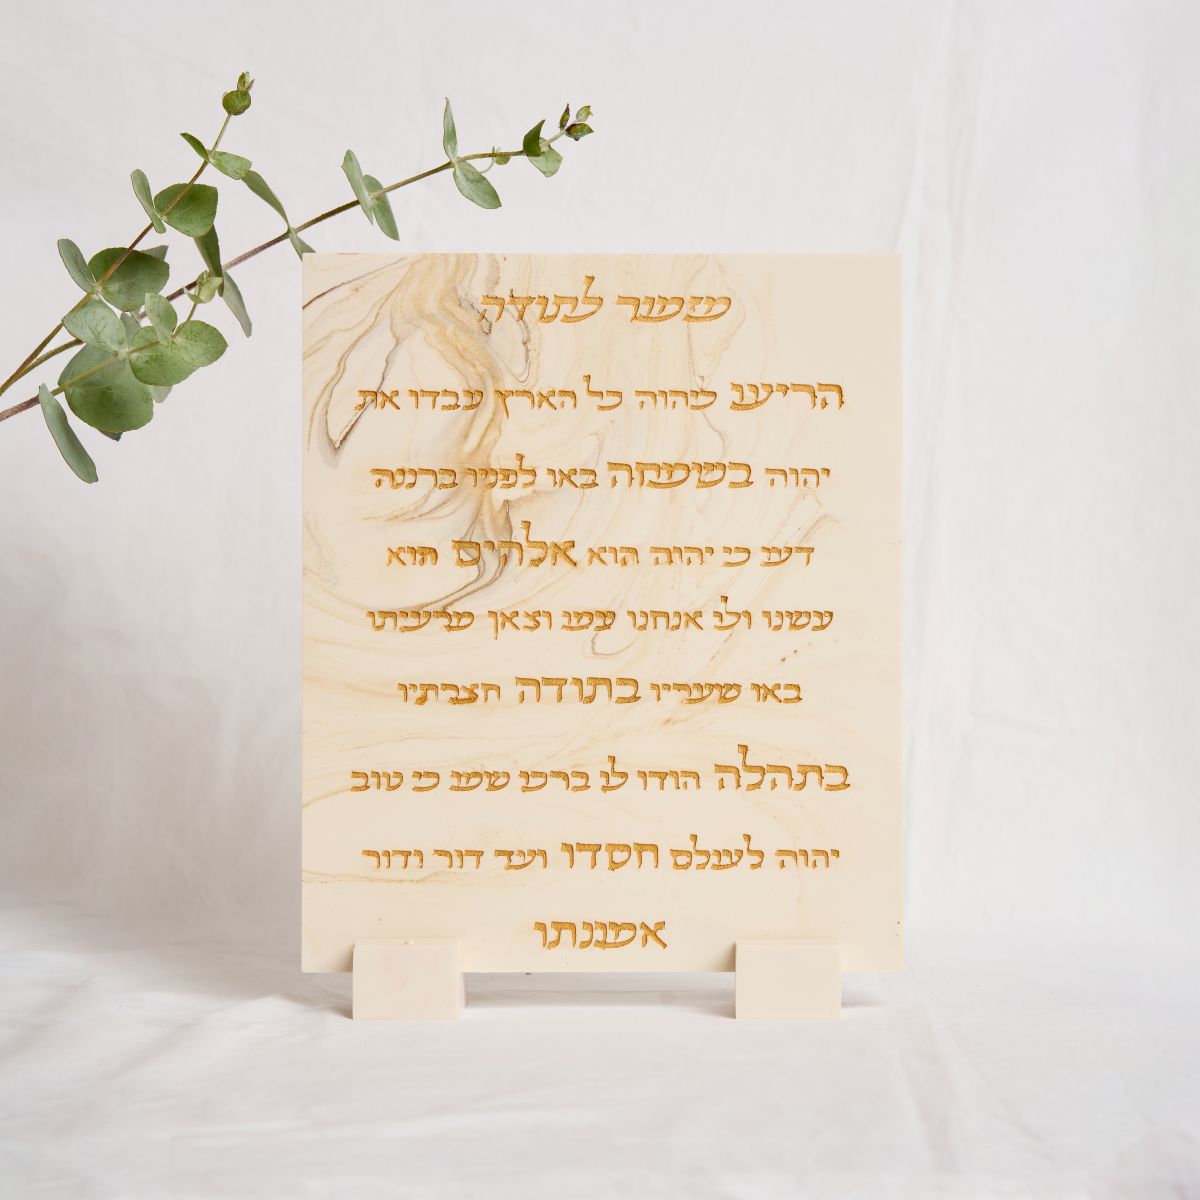 מזמור לתודה
הריעו ליהוה כל הארץ עבדו את
יהוה בשמחה באו לפניו ברננה
דעו כי יהוה הוא אלהים הוא
עשנו ולו אנחנו עמו וצאן מרעיתו
באו שעריו בתודה חצרתיו
בתהלה הודו לו ברכו שמו כי טוב
יהוה לעולם חסדו ועד דור ודור
אמונתו